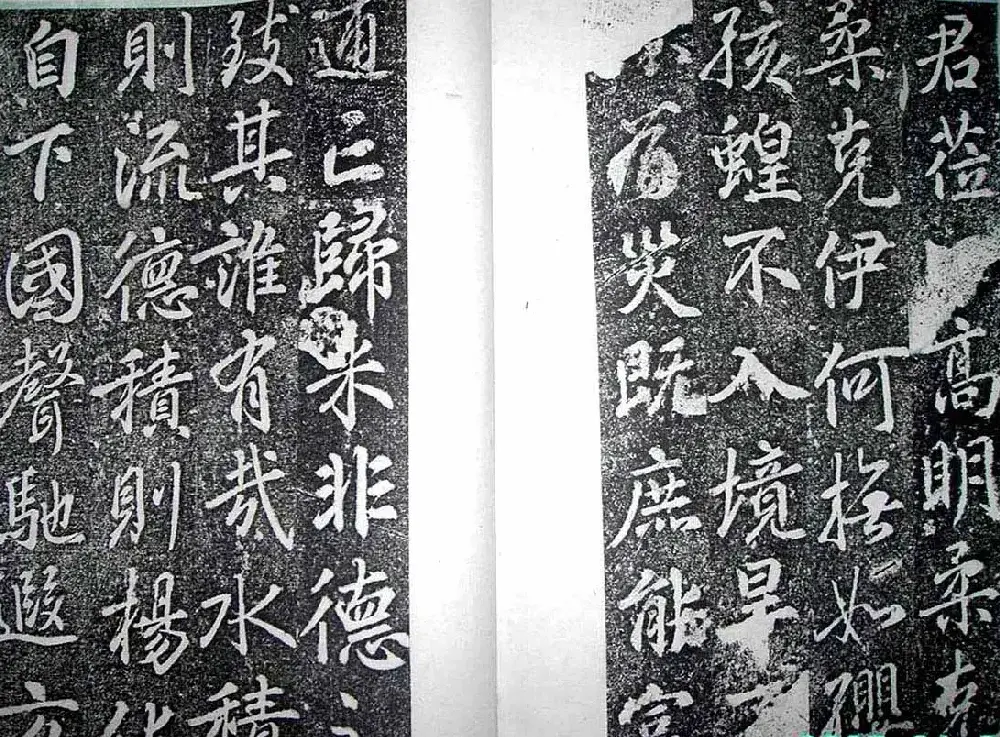 君莅高明柔克
柔克伊何撫如孾
孩蝗不入境旱
不為災既庶能
逋亡歸来非德之
致其誰有哉水積
則流德積則楊化
自下國聲馳遐方